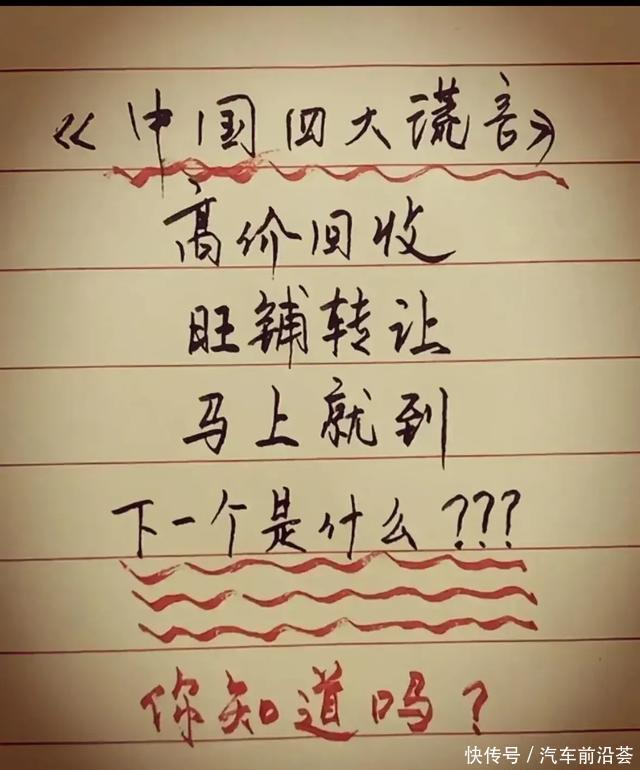 《中国四大谎言》
高价回收
旺铺转让
马上就到
下一个是什么???
你知道吗?
快传号/汽车前沿荟